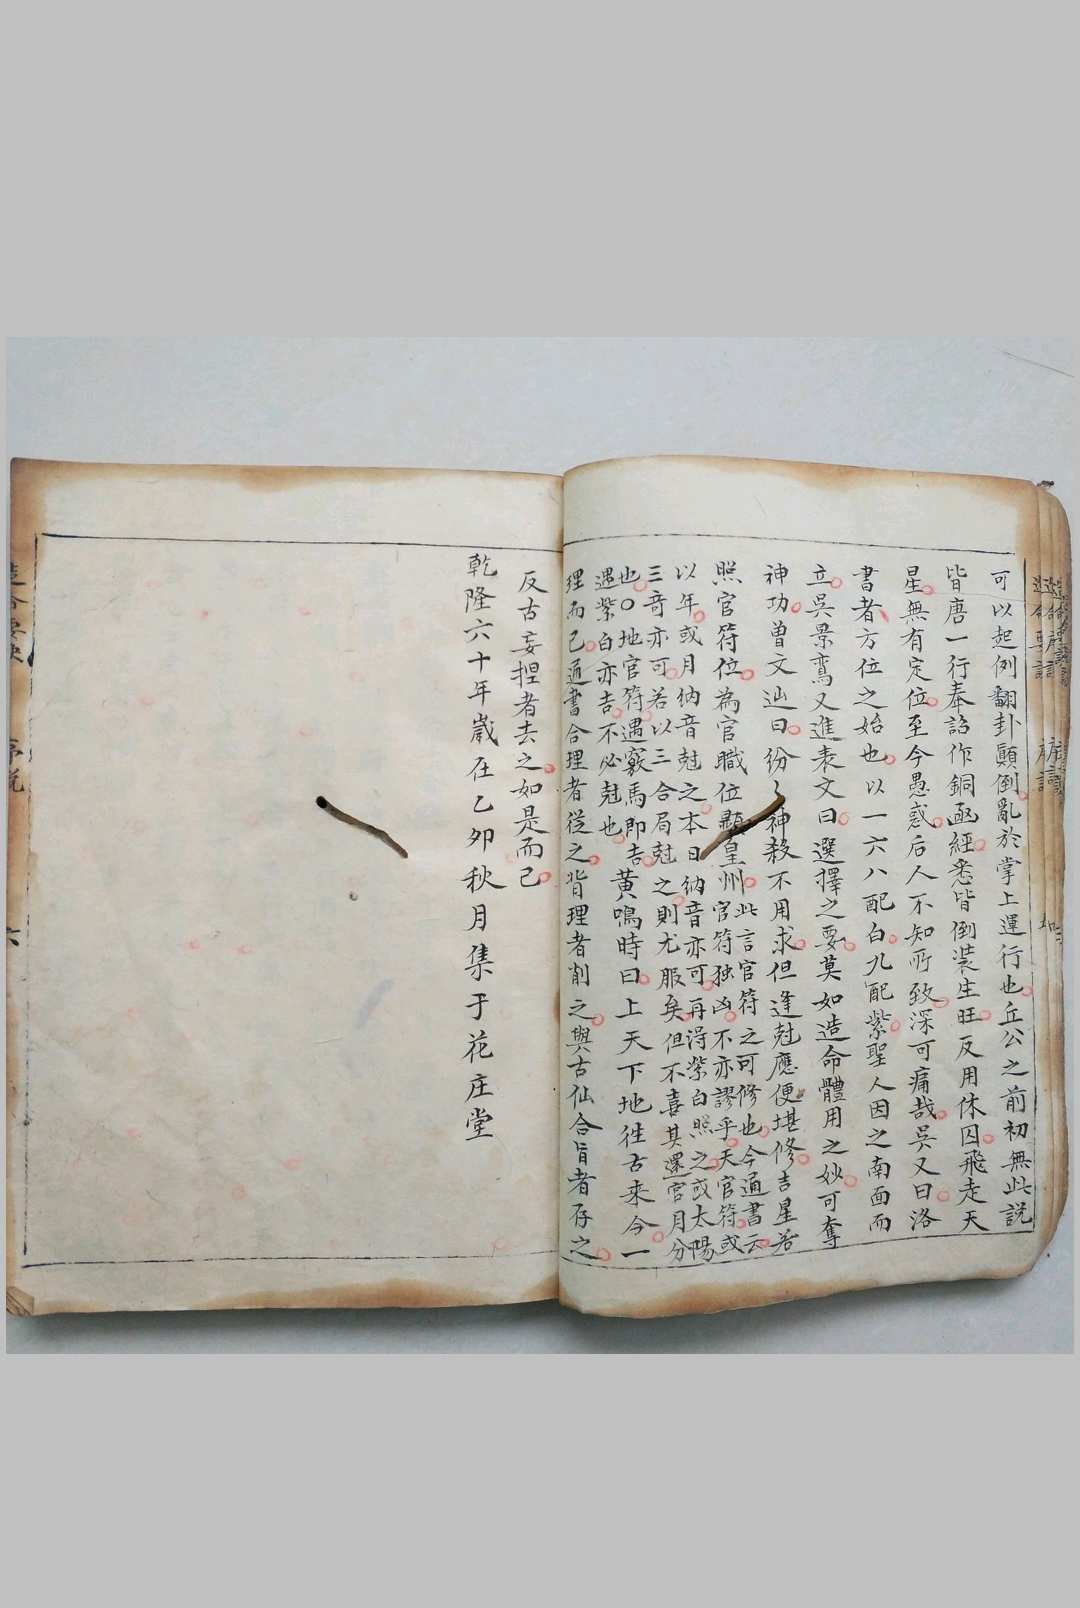 可以起例翻卦顛倒亂於掌上運行也丘公之前初無此説
皆唐一行奉詔作銅函經悉皆倒装生旺反用休囚飛走天
星無有定位至今愚惑后人不知所致深可痛哉吳又曰洛
書者方位之始也以一六八配白九配紫聖人因之南面而
立吳景鸞又進表文曰選擇之要莫如造命體用之妙可奪
神功曾文辿曰紛〻神殺不用求但逢尅應便堪修吉星若
照官符位為官職位顯皇州此言官符之可修也今通書云
官符独凶不亦謬乎天官符或
以年或月纳音尅之本日纳音亦可再得紫白照之或太陽
三竒亦可若以三合局尅之則尤服矣但不喜其還宫月分
也〇地官符遇竅馬即吉黄鳴時曰上天下地徃古来今一
遇紫白亦吉不必尅也
理而已通書合理者從之背理者削之與古仙合旨者存之
反古妄捏者去之如是而已
乾隆六十年歲在乙卯秋月集于花庄堂